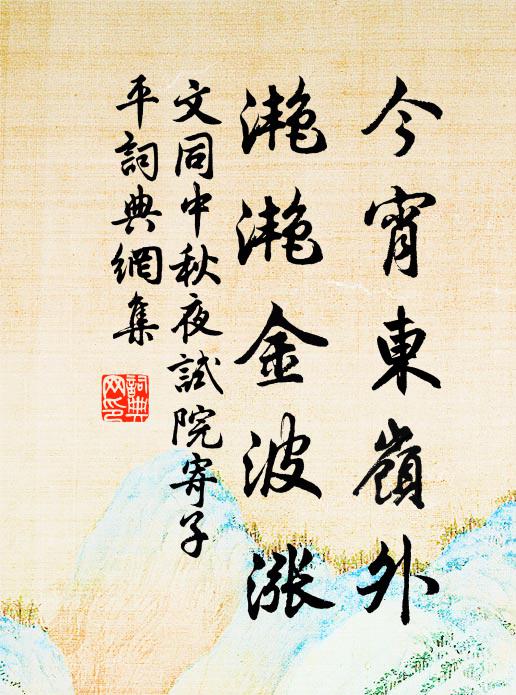 今宵東嶺外
灔灔金波漲
文同中秋夜試院寄子
平詞典網集
詞典網印